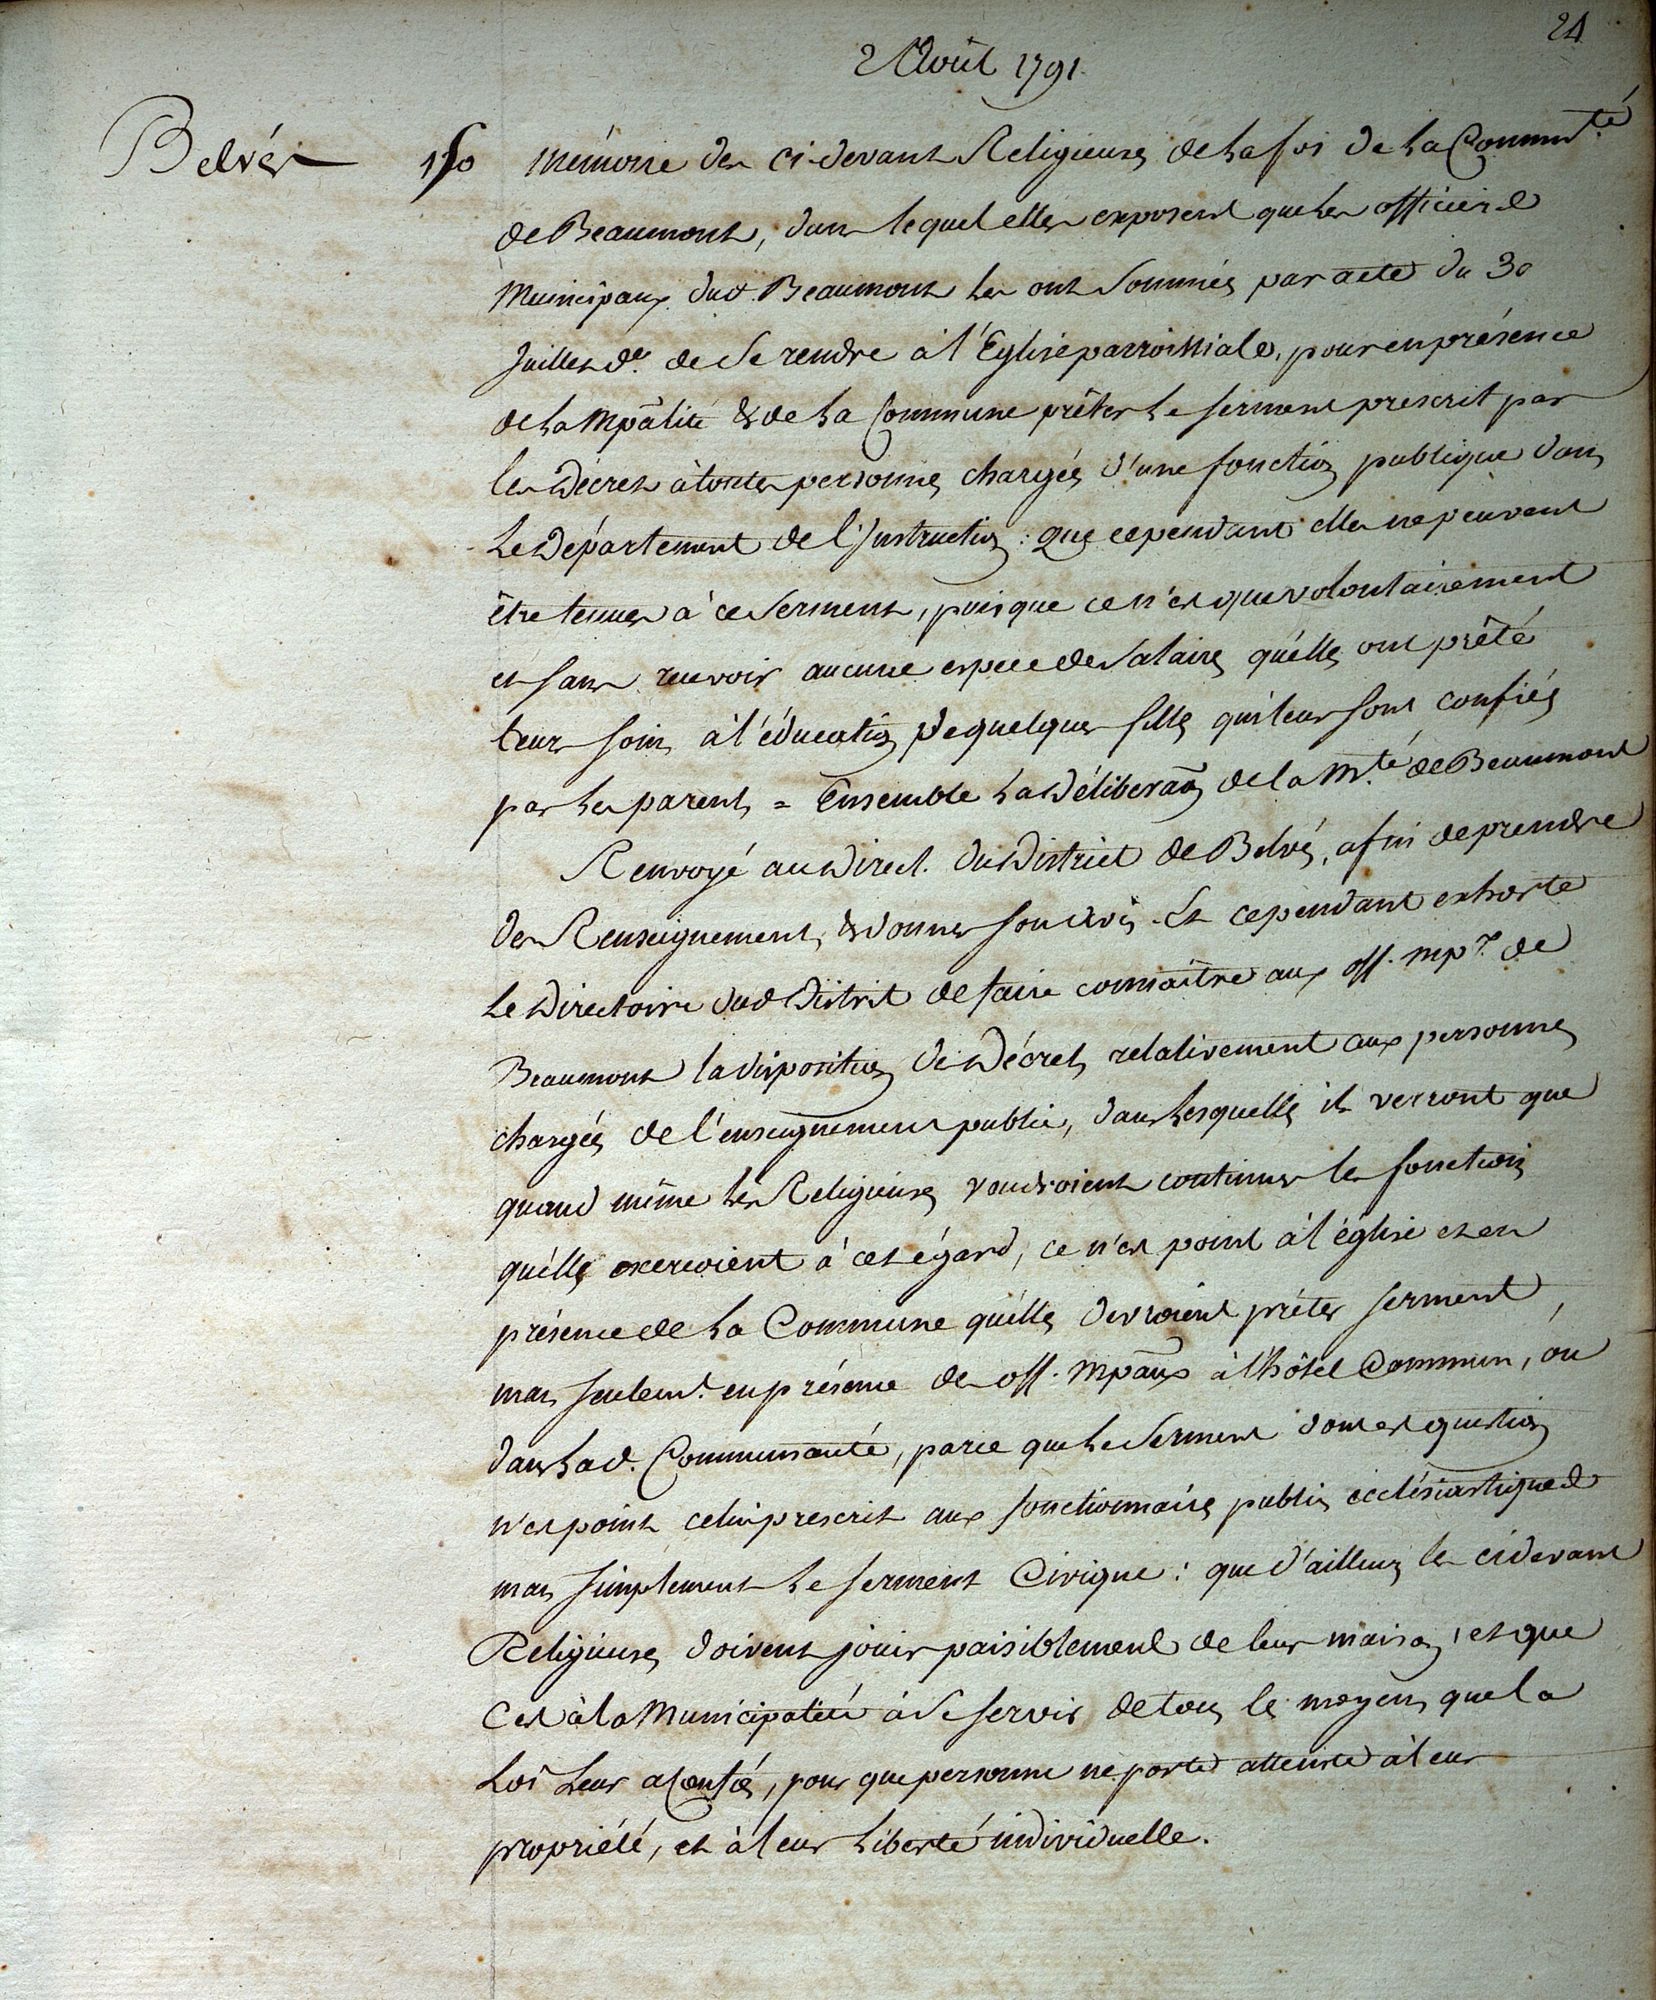 24
2 Août 1791.
Belvés 150 Mémoire des ci-devant Religieuses de la foi de la Commun.té
de Beaumont, dans lequel elles exposent que les officiers
Municipaux dud. Beaumont les ont sommées par acte du 30
Juillet d.er de se rendre à l'Eglise parroissiale, pour en présence
de la Mpalité & de la Commune prêter le serment prescrit par
les Décrets à toutes personnes chargées d'une fonction publique dans
le Département de l'Instruction : que cependant elles ne peuvent
être tenues à ce serment, puisque ce n'est que volontairement
et sans recevoir aucune espece de salaire qu'elles ont prêté
leurs soins à l'éducation de quelques filles qui leur sont confiées
par les parents = Ensemble la Déliberaon de la M.té de Beaumont
Renvoyé au Direct. du District de Belvés, afin de prendre
des Renseignements, & donner son avis. Et cependant exhorte
le Directoire dud District de faire connaître aux off. mp.x de
Beaumont la disposition des Décrets relativement aux personnes
chargées de l'enseignement public, dans lesquelles ils verront que
quand même les Religieuses voudroient continuer les fonctions
qu'elles exercoient à cet égard, ce n'est point à l'église et en
présence de la Commune qu'elles devroient prêter serment,
mais seulem.t en présence des off. mpaux à l'hôtel Commun, ou
dans lad. Communauté, parce que le Serment dont est question
n'est point celui prescrit aux fonctionnaires publics ecclésiastiques
mais simplement le serment Civique : que d'ailleurs les cidevant
Religieuses doivent jouir paisiblement de leur maison, et que
C'est à la Municipalité à se servir de tous les moyens que la
Loi leur a Confiés, pour que personne ne porte atteinte à leur
propriété, et à leur liberté individuelle.